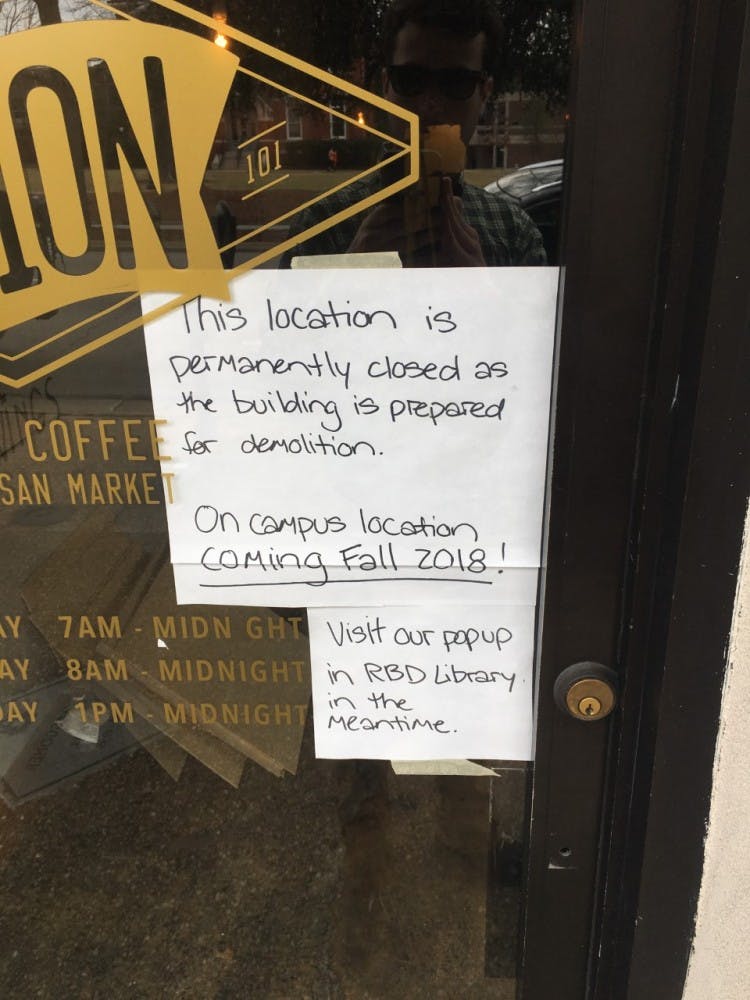 ION
101
This location is
permanently closed as
the building is prepared
for demolition.
On campus location
coming Fall 2018!
COFFEE
SAN MARKET
AY 7AM - MIDN GHT
AY 8AM - MIDNIGHT
DAY 1PM - MIDNIGHT
Visit our popup
in RBD Library
in the
meantime.